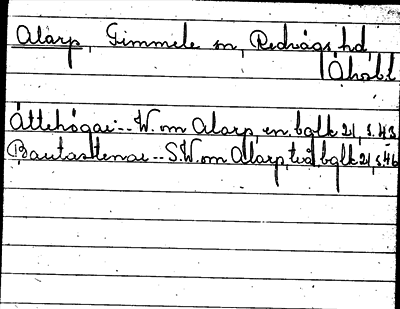 Alarp, Gimmele sn, Redvägs hd
Åhobl
Ättehögar -- W. om Alarp, en. bglk 21, s. 43
Bautastenar -- S.W. om Alarp, två bglk 21, s. 46